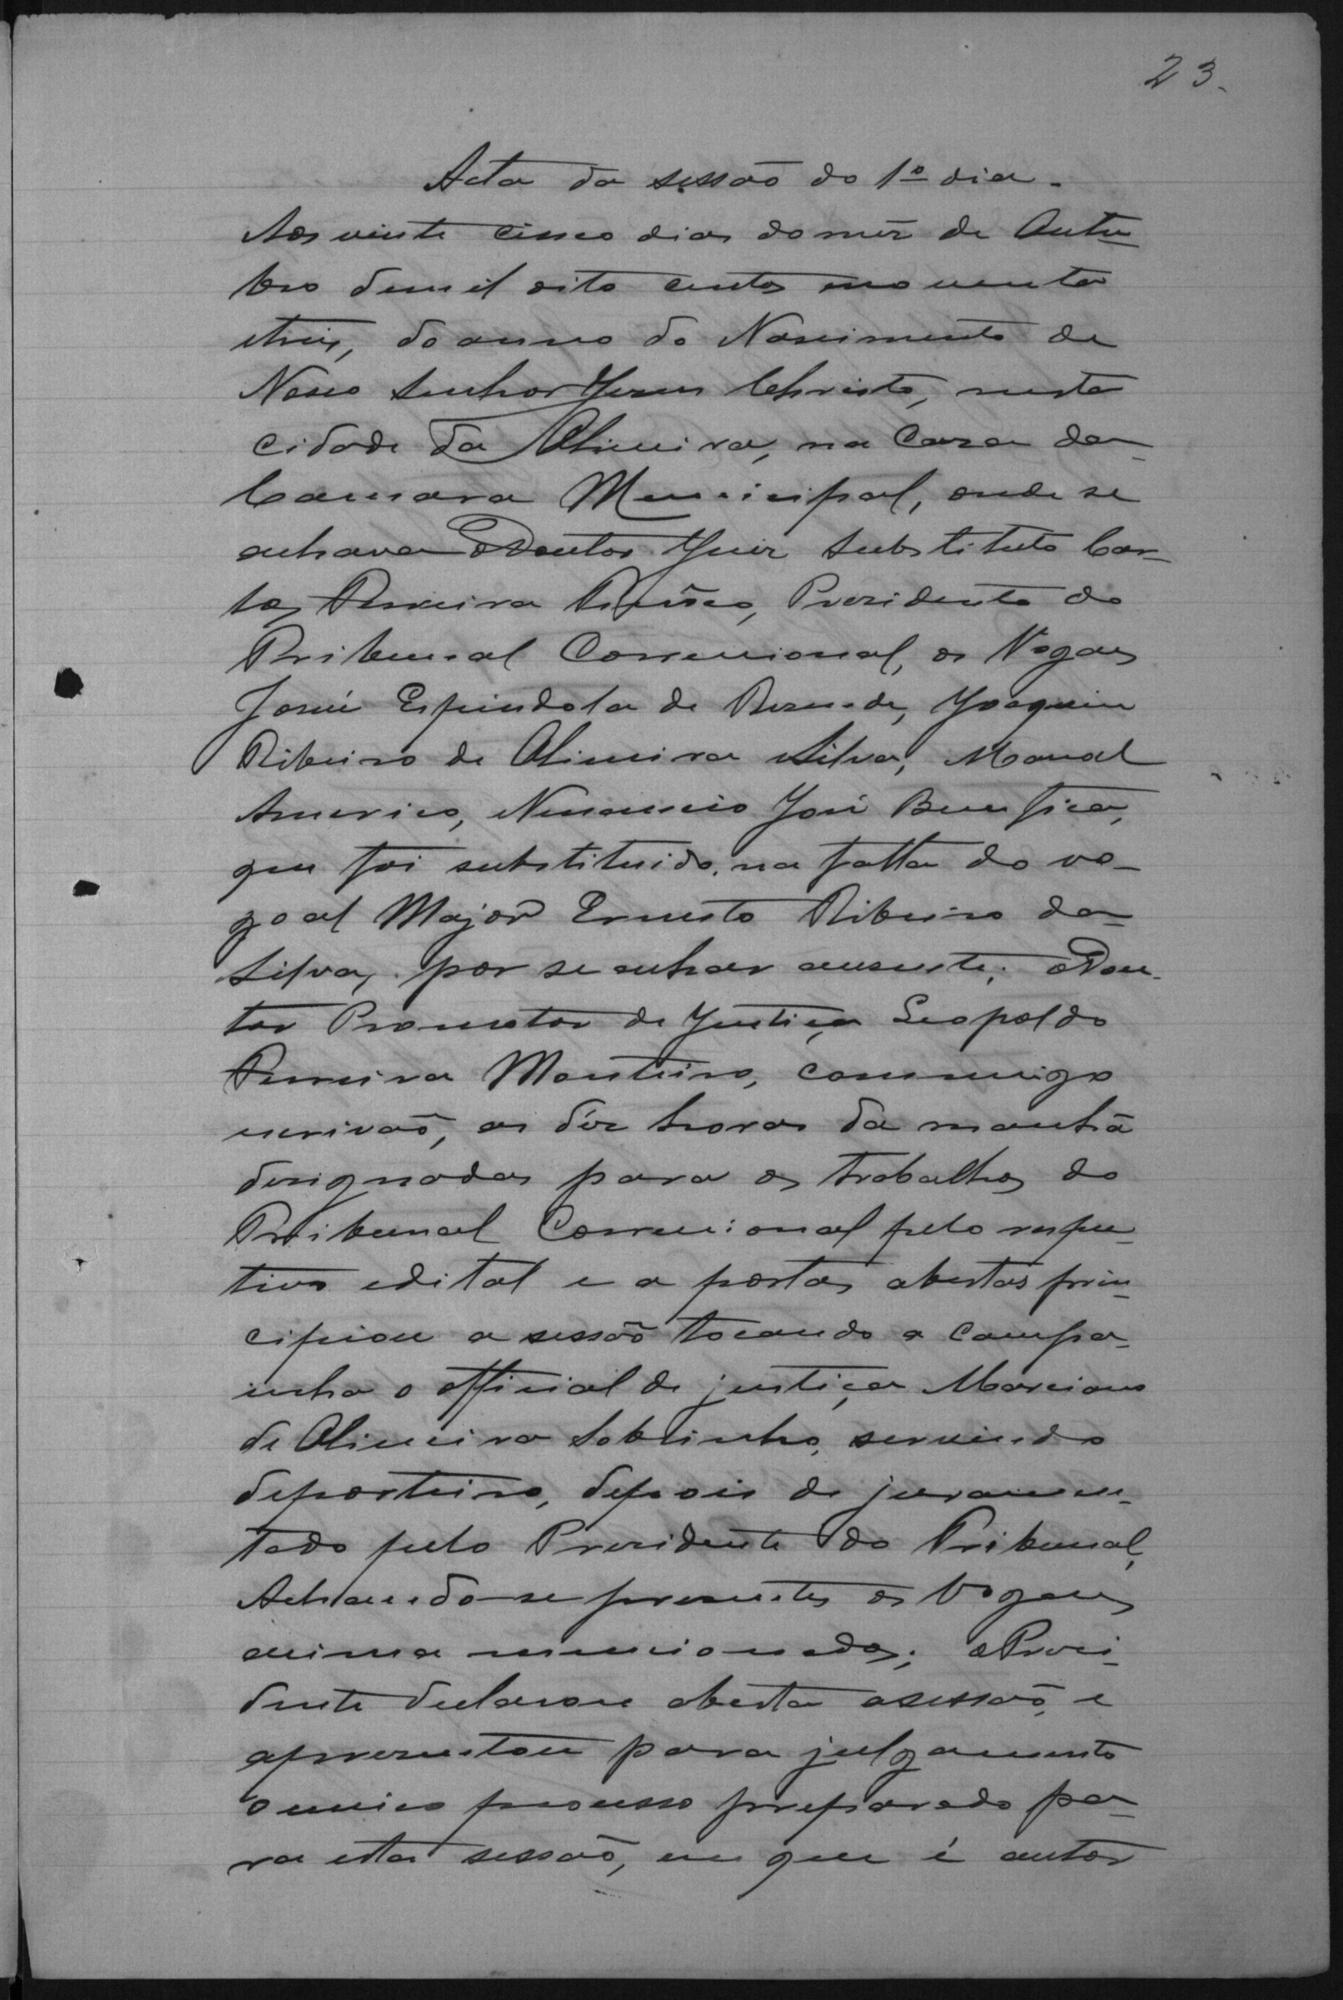 23.
Acta da sessão do 1º dia.
Aos vinte cinco dias do mêz de Outu-
bro de mil oito centos e noventa
e tres, do anno do Nascimento de
Nosso Senhor Jesus Christo, nesta
cidade da Oliveira, na Caza da
Camara Municipal, onde se
achava o Doutor Juiz Substituto Car-
los Ferreira , Prezidente do
Tribunal Correcional, os Vogaes
José Espindola de Rezende, Joaquim
Ribeiro de Oliveira e Silva, Manoel
Americo, Venancio José Bemfica,
que foi substituido, na falta do vo-
goal Major Ernesto Ribeiro da
Silva, por se achar ausente; o Dou-
tor Promotor de Justiça Leopoldo
Ferreira Monteiro, commigo
escrivão, as déz horas da manhã
designadas para os trabalhos do
Tribunal Correcional pelo respec-
tivo edital e a portas abertas prin-
cipiou a sessão tocando a campa-
inha o official de justiça Marciano
de Oliveira Sobrinho, servindo
de porteiro, depois de juramen-
tado pelo Prezidente do Tribunal,
Achando-se presentes os Vogaes
acima mencionados; o Prezi-
dente declarou aberta a sessão, e
aprezentou para julgamento
o unico processo preparado pa-
ra esta sessão, em que é autor